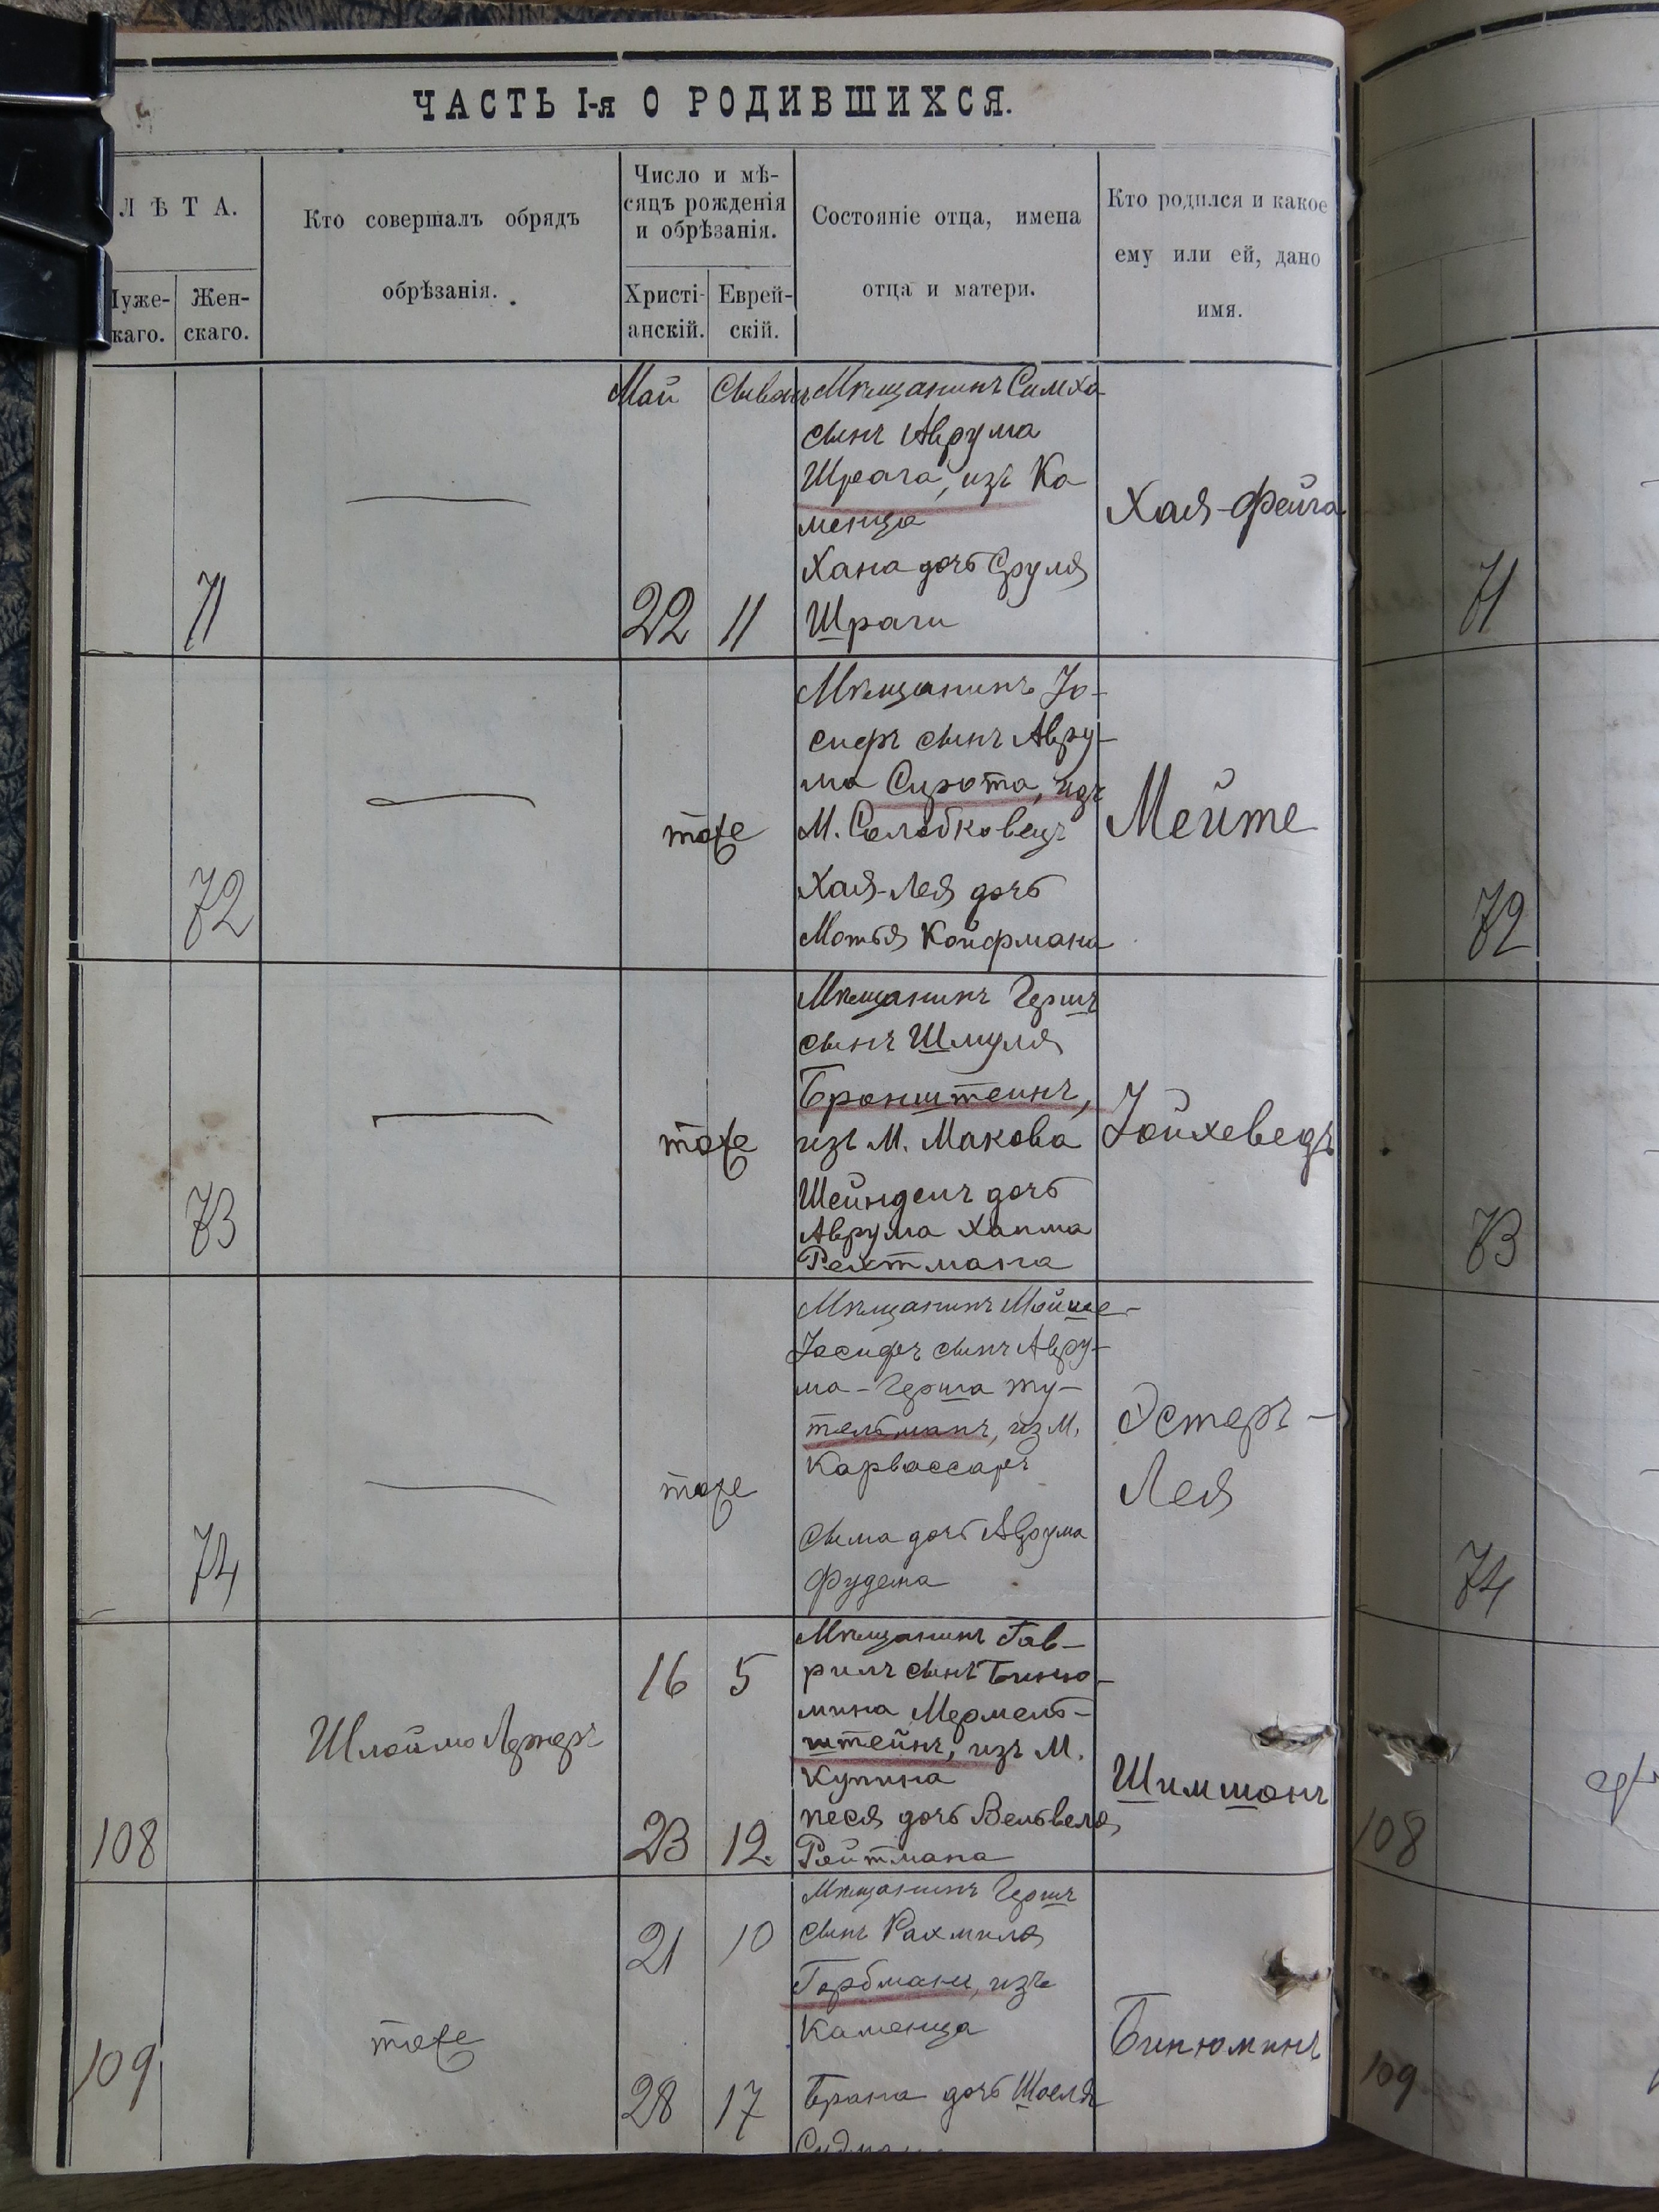 ЧАСТЬ I-я О РОДИВШИХСЯ.
ЛѢТА.
Муже-
каго.
Жен-
скаго.
Кто совершалъ обрядъ
обрѣзанія.
Число и мѣ-
сяцъ рожденія
и обрѣзанія.
Христі-
анскій.
Еврей-
скій.
Состояніе отца, имена
отца и матери.
Кто родился и какое
ему или ей, дано
имя.
71
Май Сиванъ
22 11
Мѣщанинъ Симха
сынъ Аврума
Шрага, изъ Ка
менца
Хана дочь Сруля
Шраги
Хая-Фейга
71
72
тоже
Мѣщанинъ Іо-
сифъ сынъ Авру-
ма Сирота, изъ
М. Солобковецъ
Хая-Лея дочь
Мотья Койфмана
Мейте
72
73
тоже
Мѣщанинъ Гершъ
сынъ Шмуля
Бронштейнъ,
изъ М. Макова
Шейндель дочь
Аврума Хаима
Рейтмана
Іойхеведъ
73
74
тоже
Мѣщанинъ Мойше-
Іосифъ сынъ Авру-
ма-Герша ту-
тельманъ, из М.
Карвассаръ
Сима дочь Аврума
Фудема
Эстеръ-
Лея
74
108
Шлоймо Лернеръ
16 5
23 12
Мѣщанинъ Гав-
рилъ сынъ Биню-
мина Мермель-
штейнъ, изъ М.
Купина
Песя дочь Вельвеля
Рейтмана
Шимшонъ
108
109
тоже
21 10
28 17
Мѣщанинъ Гершъ
сынъ Рахмиля
Гербманъ, изъ
Каменца
Брана дочь Шоеля
Бинюминъ
109